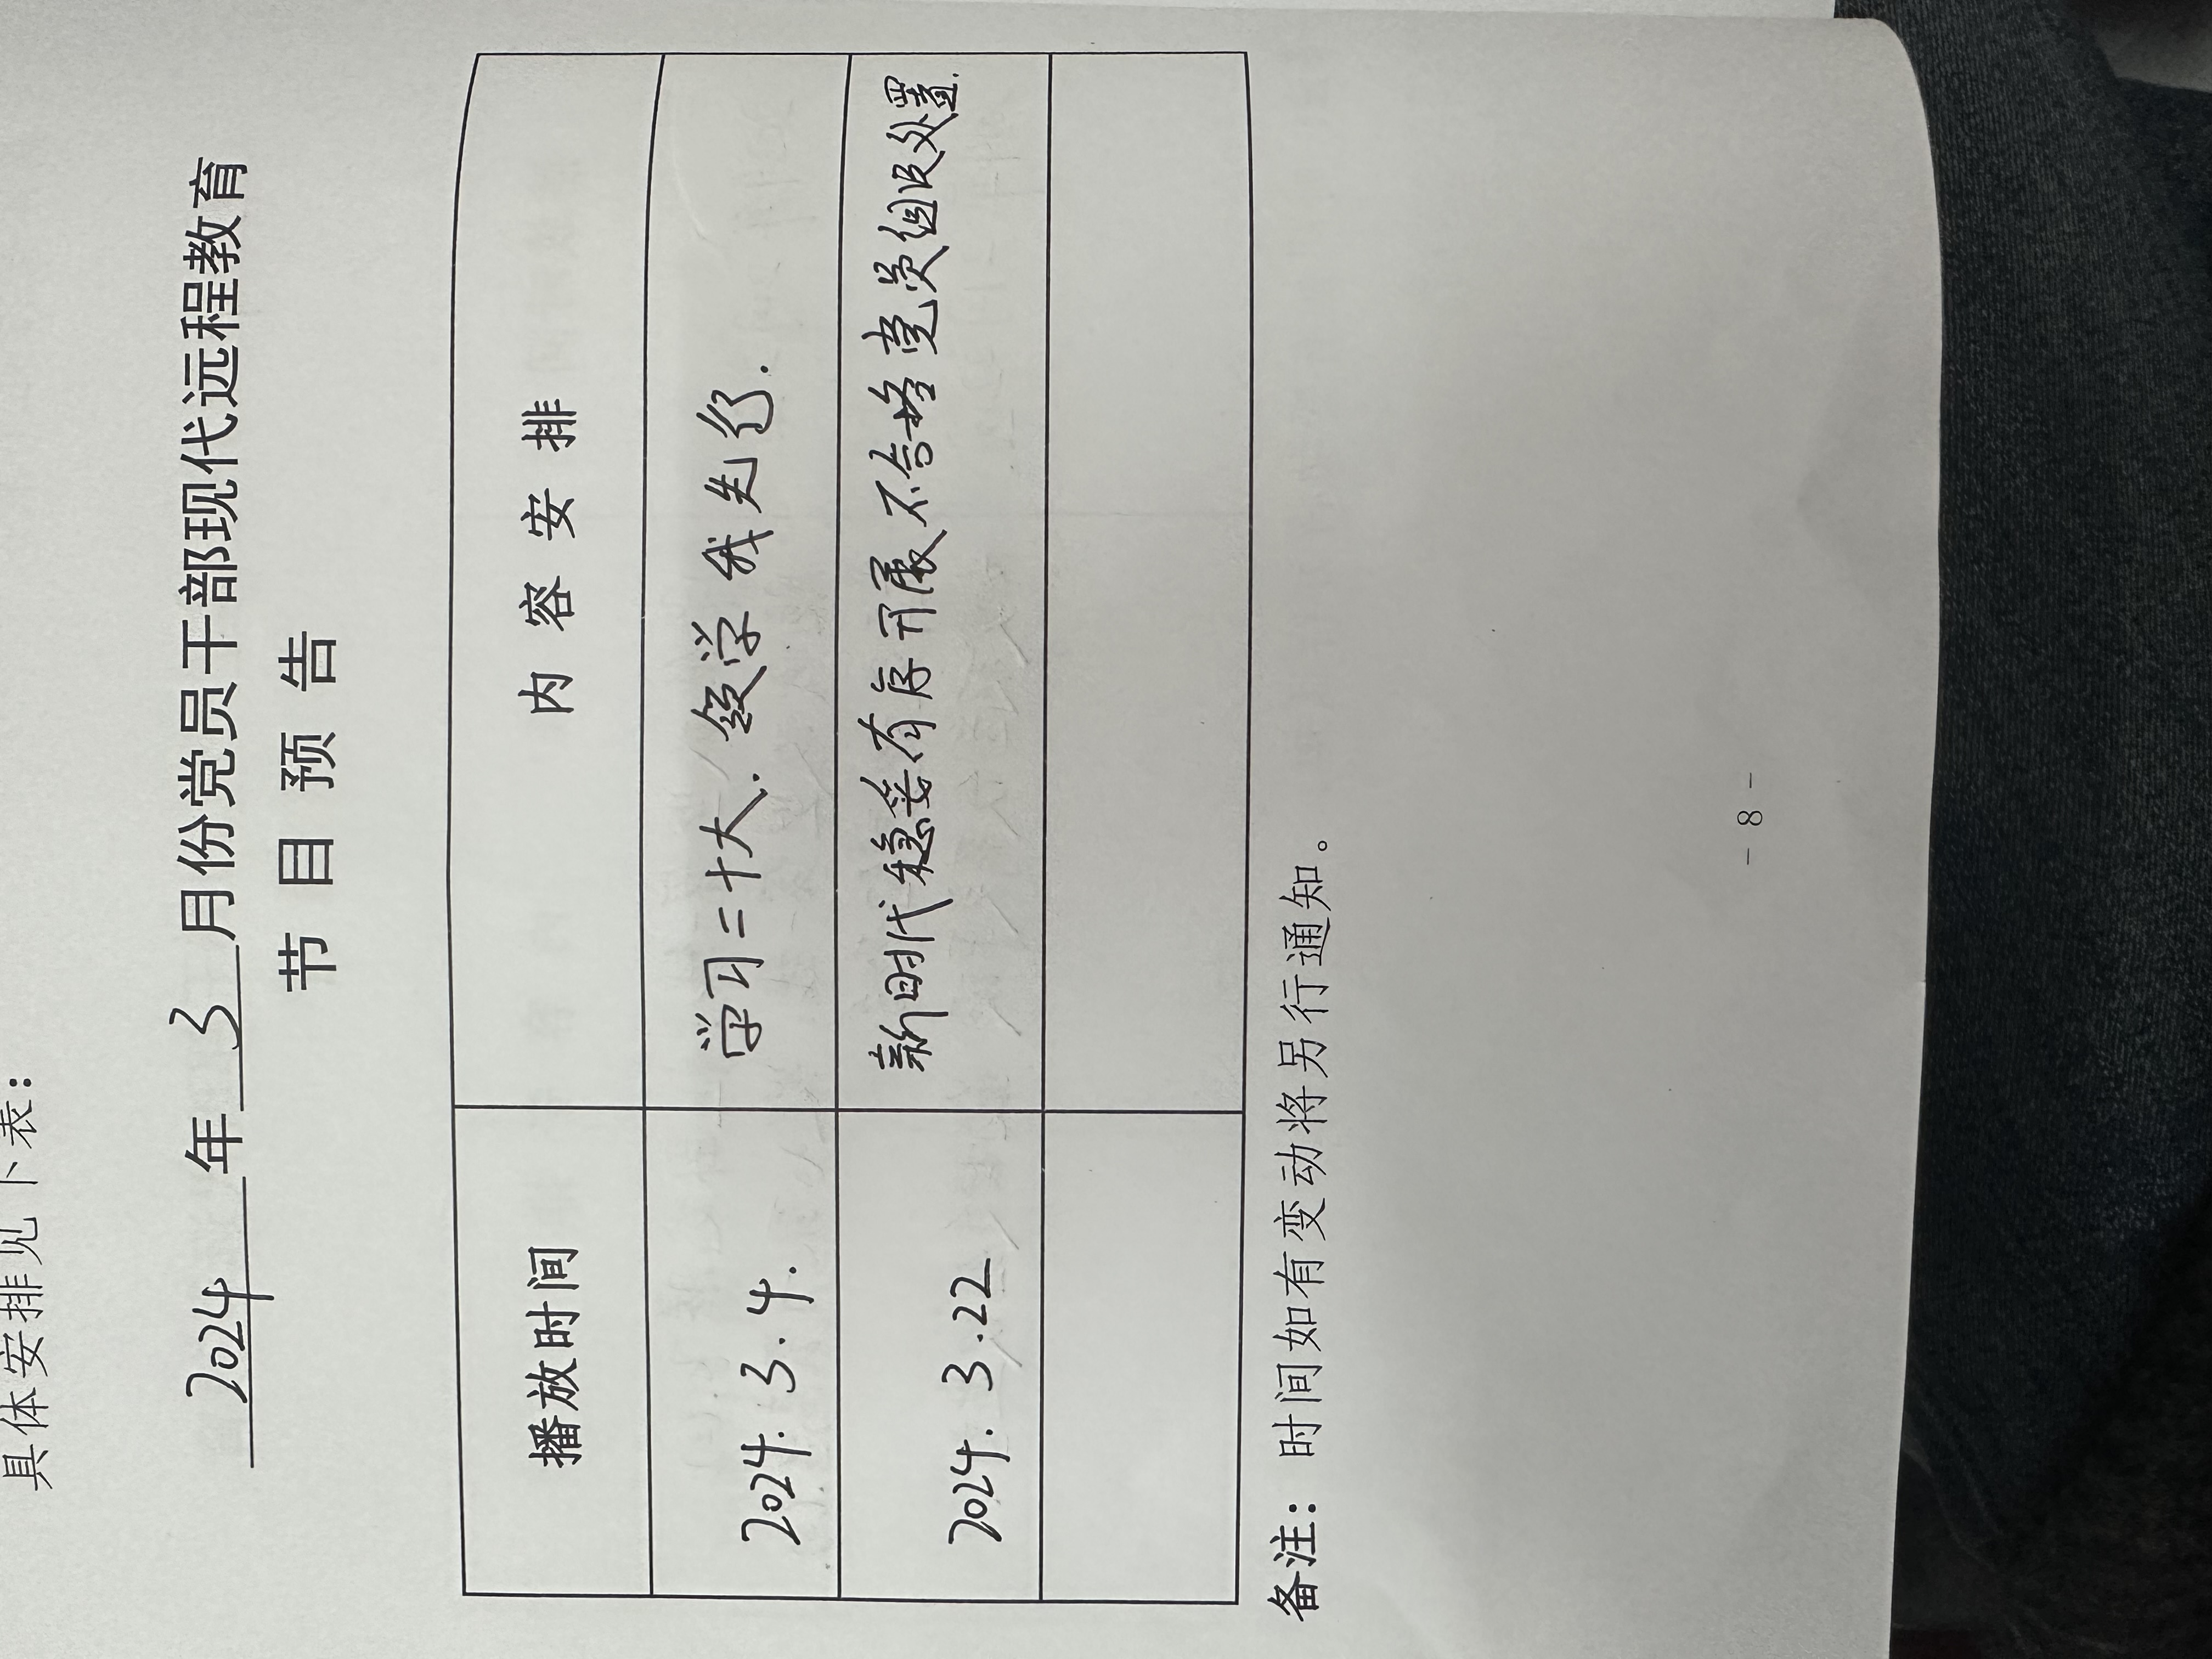 具体安排见下表：
2024年3月份党员干部现代远程教育
节目预告
播放时间 内容安排
2024.3.4. 学习二十大.领学我先行.
2024.3.22 新时代稳妥有序开展不合格党员组织处置.
备注：时间如有变动将另行通知。
- 8 -